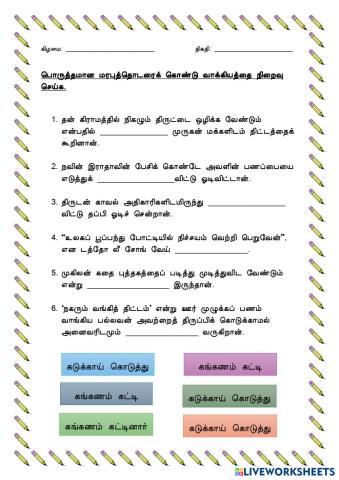 கிழமை: ____________________ திகதி: ____________________
பொருத்தமான மரபுத்தொடரைக் கொண்டு வாக்கியத்தை நிறைவு
செய்க.
1. தன் கிராமத்தில் நிகழும் திருட்டை ஒழிக்க வேண்டும்
என்பதில் ________________ முருகன் மக்களிடம் திட்டத்தைக்
கூறினான்.
2. நவின் இராதாவின் பேசிக் கொண்டே அவளின் பணப்பையை
எடுத்துக் ________________விட்டு ஓடிவிட்டான்.
3. திருடன் காவல் அதிகாரிகளிடமிருந்து ________________
விட்டு தப்பி ஓடிச் சென்றான்.
4. “உலகப் பூப்பந்து போட்டியில் நிச்சயம் வெற்றி பெறுவேன்”.
என டத்தோ லீ சோங் வேய் ________________.
5. முகிலன் கதை புத்தகத்தைப் படித்து முடித்துவிட வேண்டும்
என்று ________________ இருந்தான்.
6. ‘நகரும் வங்கித் திட்டம்’ என்று ஊர் முழுக்கப் பணம்
வாங்கிய பல்லவன் அவற்றைத் திருப்பிக் கொடுக்காமல்
அனைவரிடமும் ________________ வருகிறான்.
கடுக்காய் கொடுத்து கங்கணம் கட்டி
கங்கணம் கட்டி கடுக்காய் கொடுத்து
கங்கணம் கட்டினார் கடுக்காய் கொடுத்து
LIVEWORKSHEETS